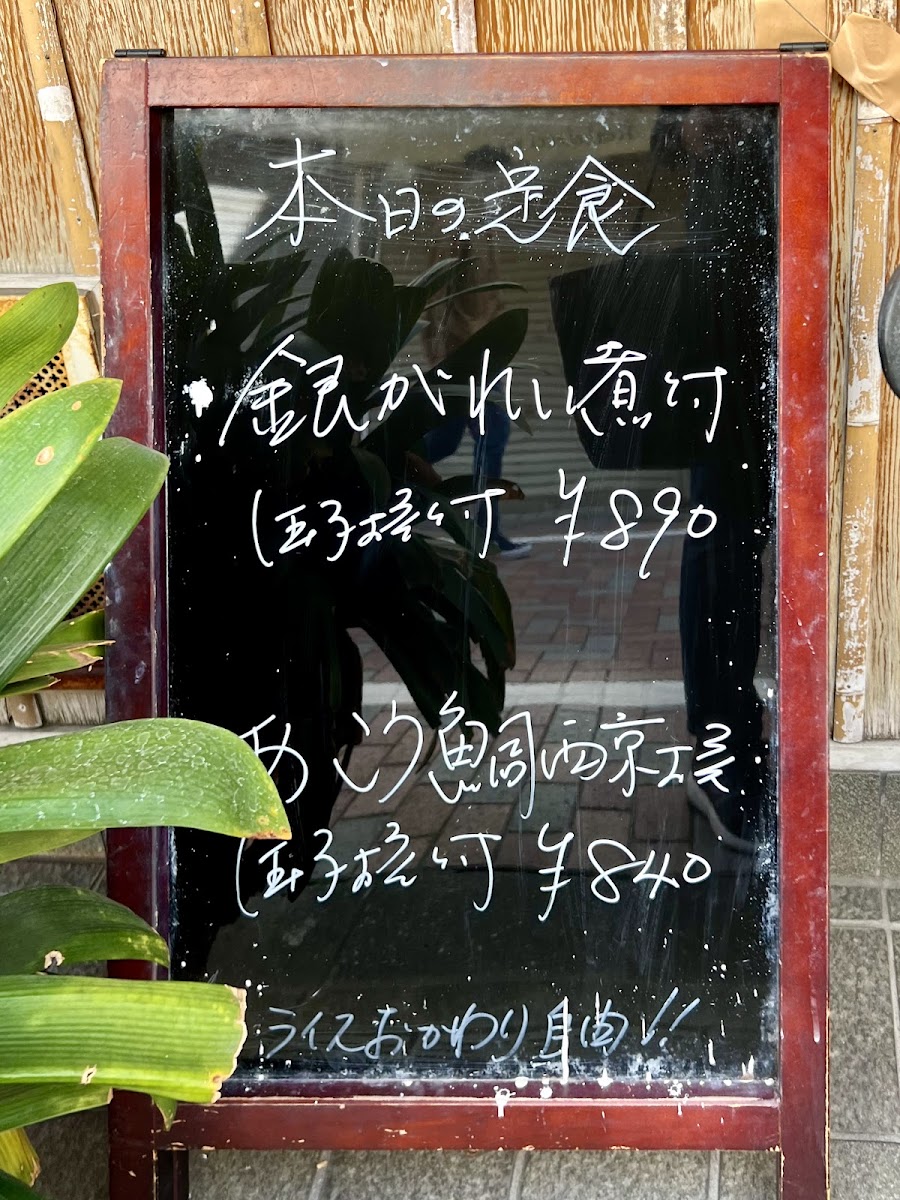 本日の定食
銀がれい煮付
(玉子焼付 ¥890
あこう鯛西京焼
(玉子焼付 ¥840
ライスおかわり自由!!